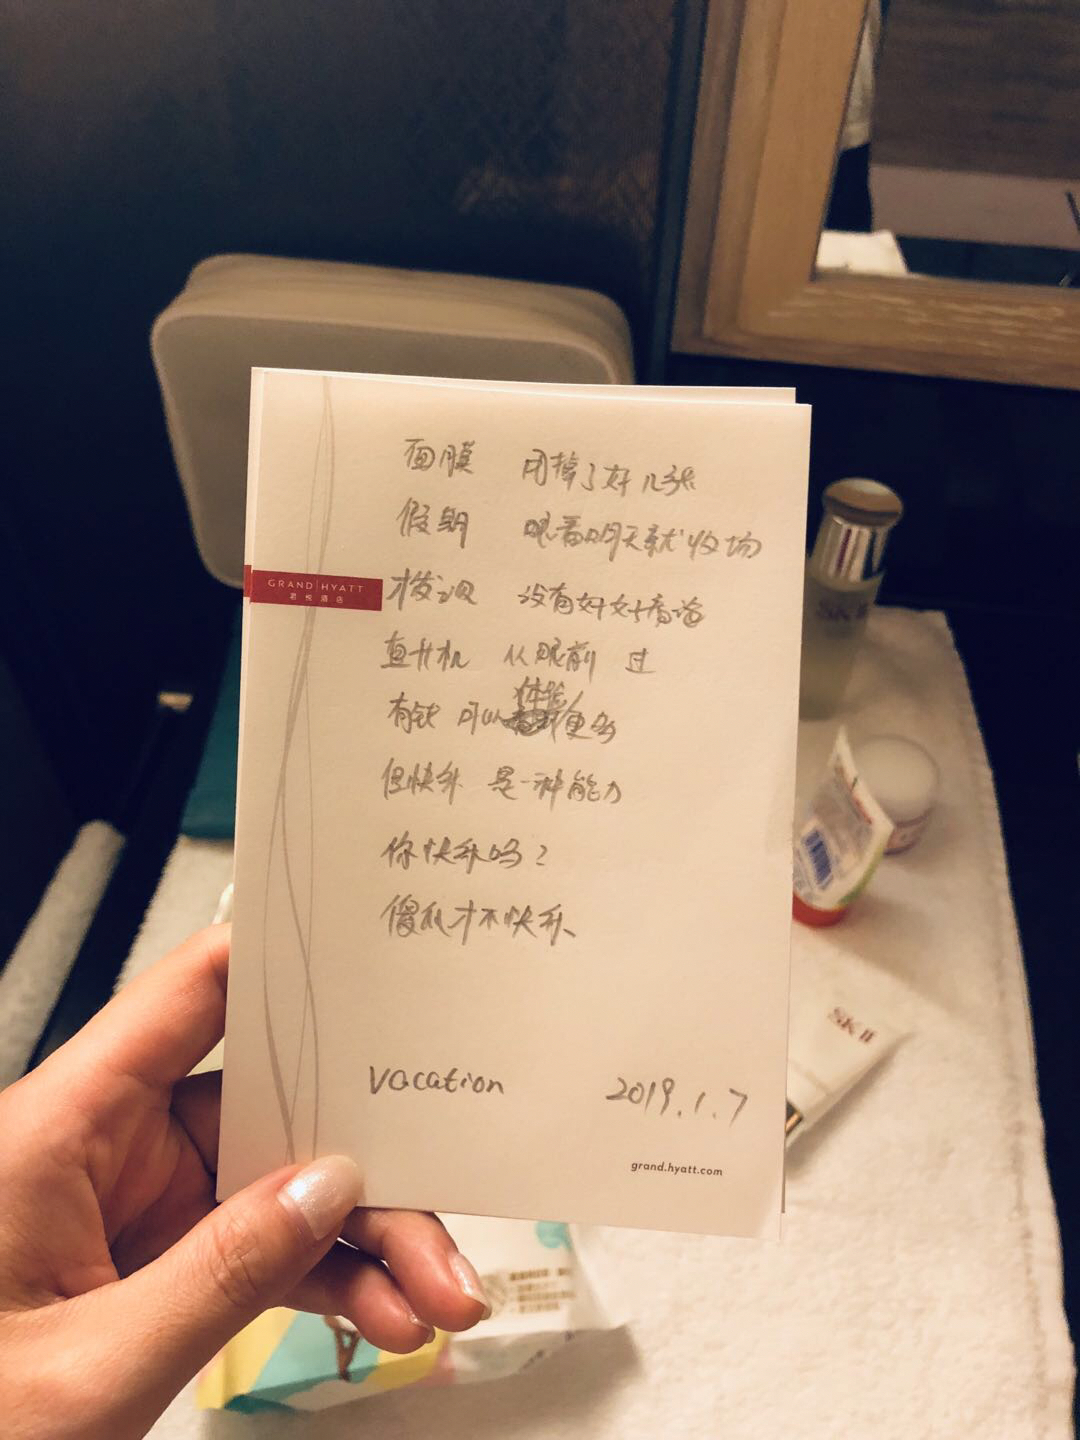 面膜 用掉了好几张
假期 眼看明天就收场
GRAND HYATT
君悦酒店
才发现 没有好好看海
直升机 从眼前 过
有钱 可以体验更多
但快乐 是一种能力
你快乐吗？
傻瓜才不快乐、
vacation 2019.1.7
grand.hyatt.com
SK II
SK II